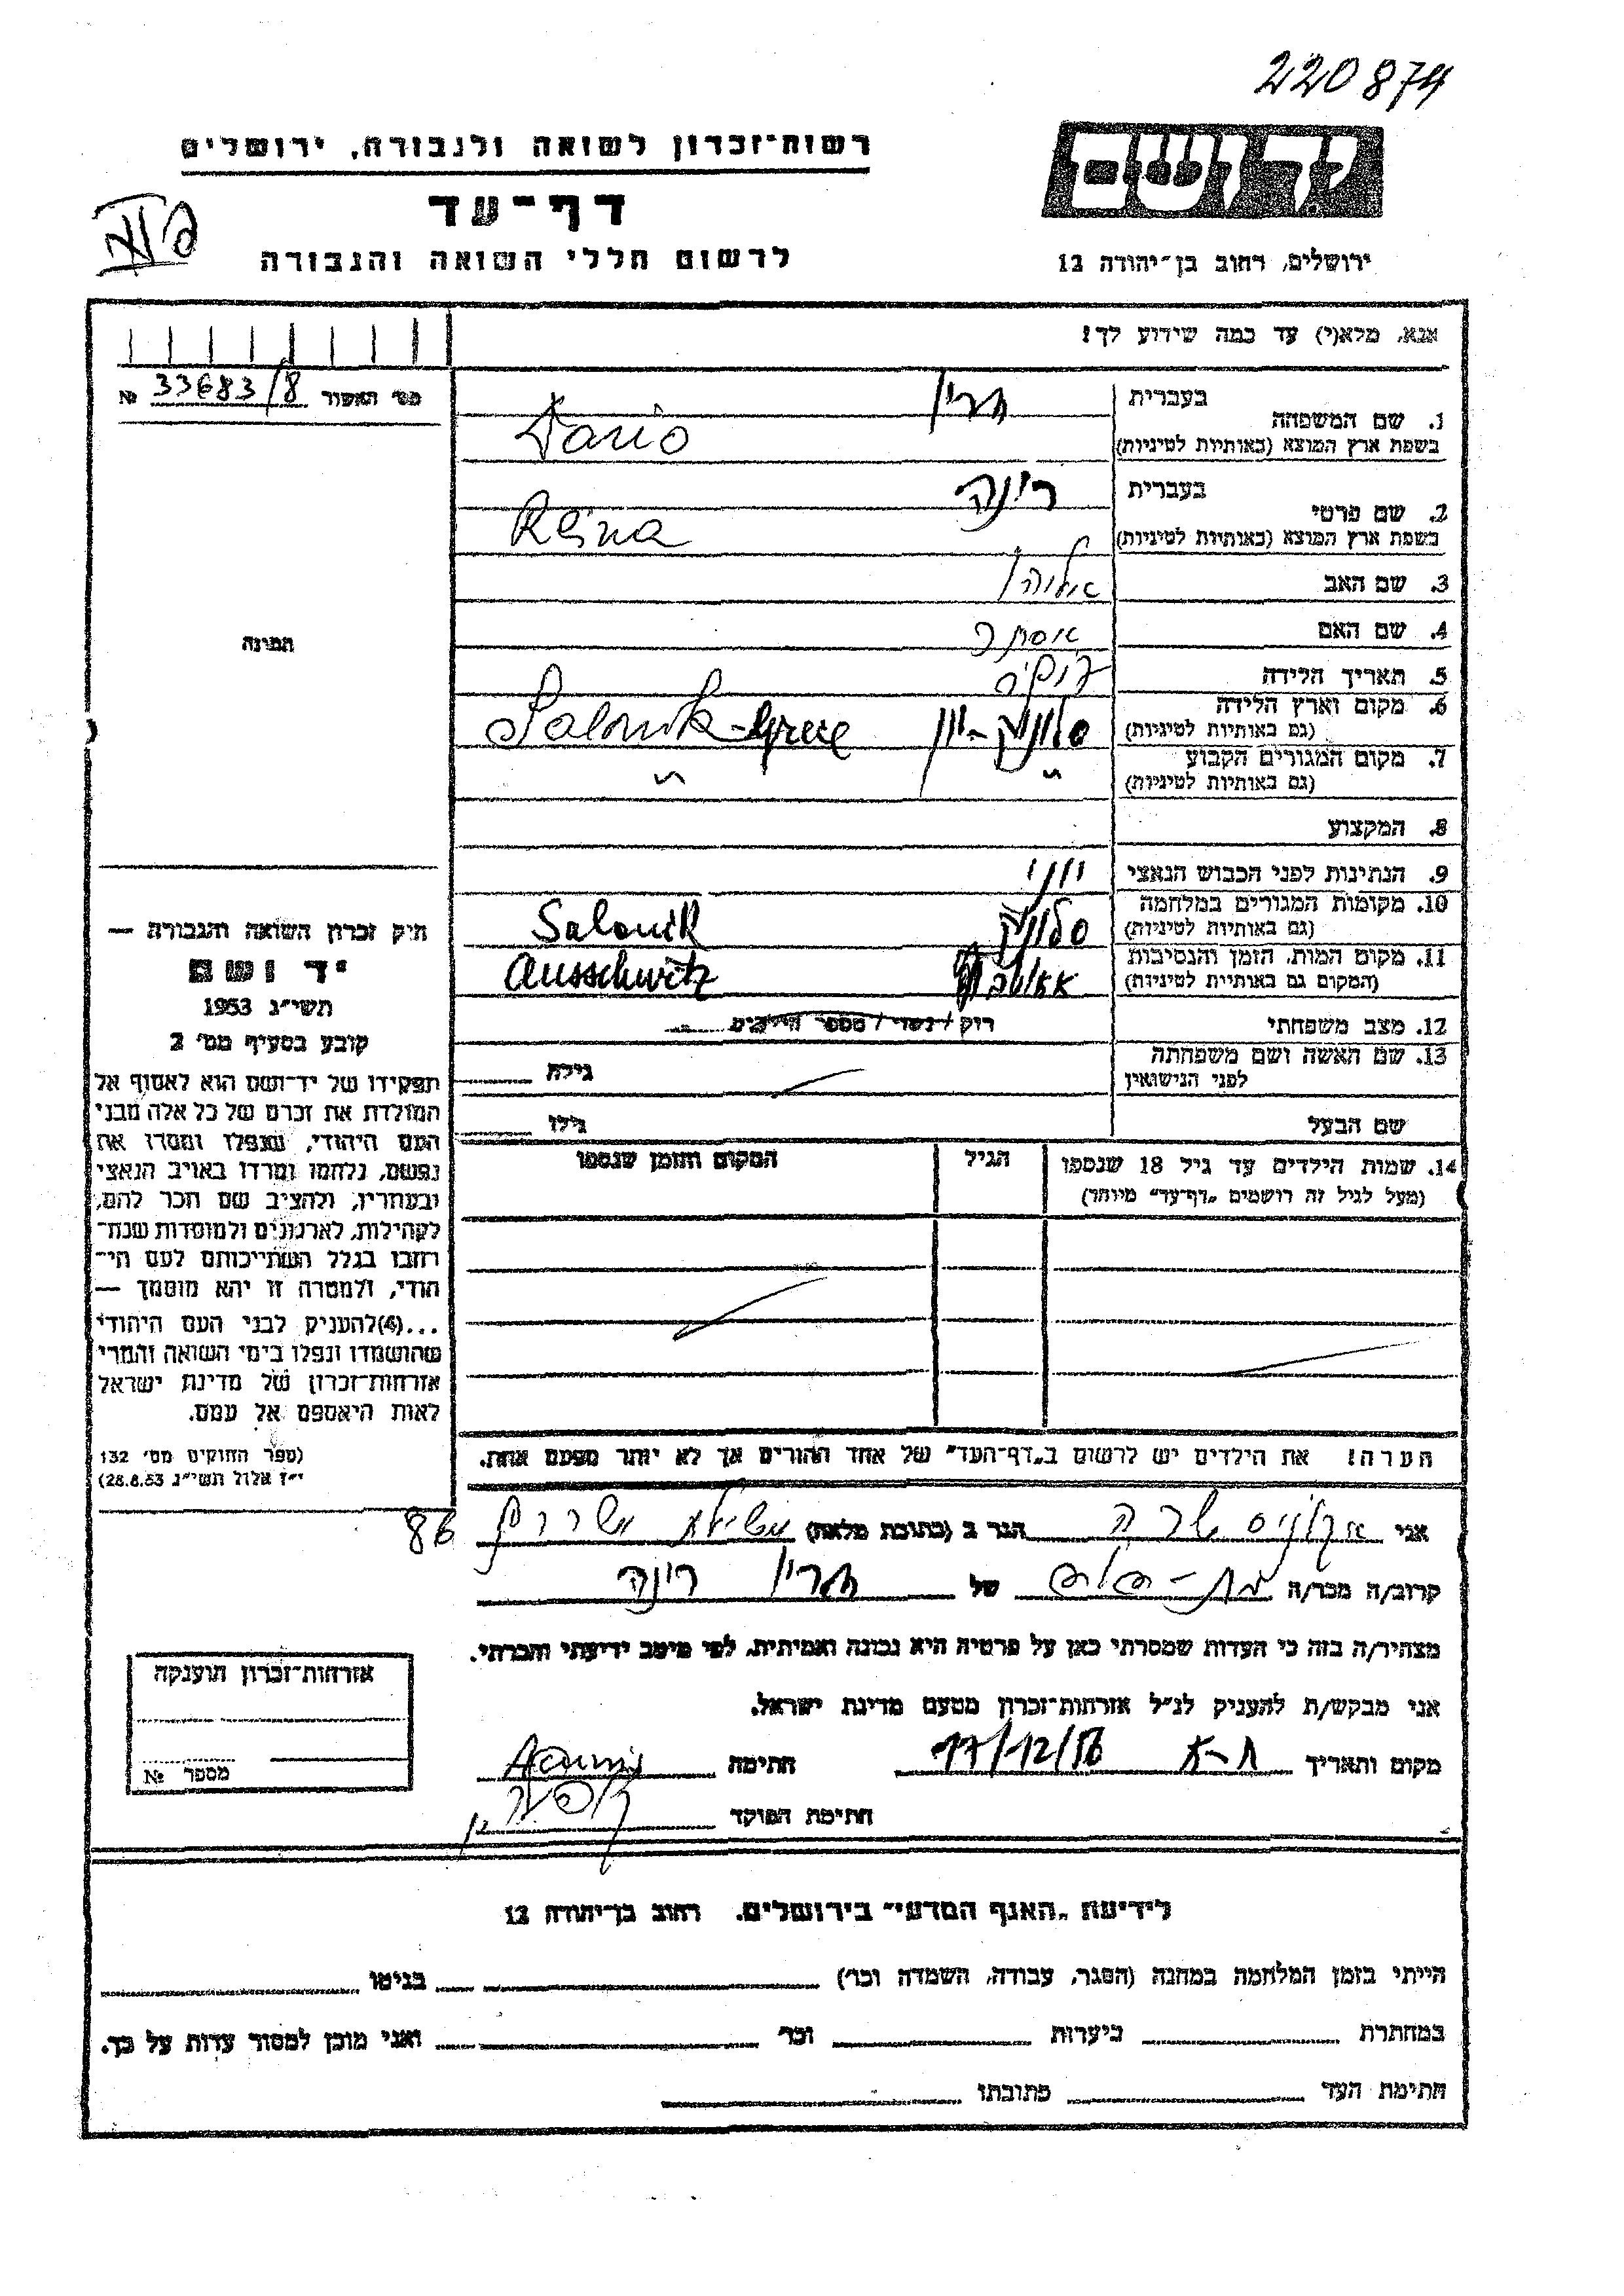 220874
רשות־זכרון לשואה ולגבורה, ירושלים
דף־עד
לרשום חללי השואה והגבורה
ירושלים, רחוב בן־יהודה 12
אנא, מלא(י) עד כמה שידוע לך!
מס׳ האשור 33683/8 №
1. שם המשפחה
בעברית
בשפת ארץ המוצא (באותיות לטיניות) Dario
2. שם פרטי
בעברית רינה
בשפת ארץ המוצא (באותיות לטיניות) Reina
3. שם האב אליהו
4. שם האם אסתר
5. תאריך הלידה
6. מקום וארץ הלידה
(גם באותיות לטיניות) סלוניק-יון Salonik-Grece
7. מקום המגורים הקבוע
(גם באותיות לטיניות) " "
8. המקצוע
9. הנתינות לפני הכבוש הנאצי יוני
10. מקומות המגורים במלחמה
(גם באותיות לטיניות) סלוניק Salonik
11. מקום המות, הזמן והנסיבות
(המקום גם באותיית לטיניות) Ausschwitz
12. מצב משפחתי רוק / נשוי / מספר הילדים
13. שם האשה ושם משפחתה
לפני הנישואין גילה
שם הבעל גילו
14. שמות הילדים עד גיל 18 שנספו
(מעל לגיל זה רושמים „דף־עד״ מיוחד)
הגיל
המקום והזמן שנספו
הערה! את הילדים יש לרשום ב„דף־העד״ של אחד ההורים אך לא יותר מפעם אחת.
תמונה
חיק זכרון השואה והגבורה —
יד ושם
תשי״ג 1953
קובע בסעיף מס׳ 2
תפקידו של יד־ושם הוא לאסוף אל
המולדת את זכרם של כל אלה מבני
העם היהודי, שנפלו ומסרו את
נפשם, נלחמו ומרדו באויב הנאצי
ובעוזריו, ולהציב שם וזכר להם,
לקהילות, לארגונים ולמוסדות שנח־
רחבו בגלל השתייכותם לעם הי־
הודי, ולמטרה זו יהא מוסמך —
...(4)להעניק לבני העם היהודי
שהושמדו ונפלו בימי השואה והמרי
אזרחות־זכרון של מדינת ישראל
לאות היאספם אל עמם.
(ספר החוקים מס׳ 132
י״ז אלול תשי״ג 28.8.53)
אני שרה הגר ב (כתובת מלאה) 86
קרוב/ה מכר/ה של רינה
מצהיר/ה בזה כי העדות שמסרתי כאן על פרטיה היא נכונה ואמיתית, לפי מיטב ידיעתי והכרתי.
אני מבקש/ת להעניק לנ״ל אזרחות־זכרון מטעם מדינת ישראל.
מקום ותאריך ת-א 17/12/56 חתימה
חתימת הפוקד
אזרחות־זכרון הוענקה
מספר №
לידיעת „האגף המדעי״ בירושלים, רחוב בן־יהודה 12
הייתי בזמן המלחמה במחנה (הסגר, עבודה, השמדה וכו׳) בגיטו
במחתרת ביערות וכו׳ ואני מוכן למסור עדות על כך.
חתימת העד כתובתו